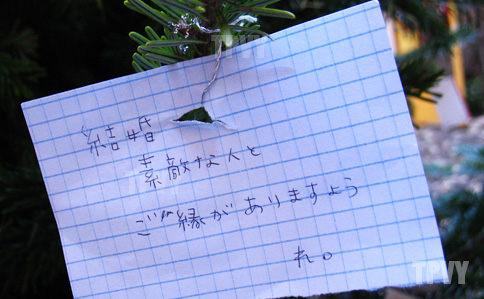 結婚
素敵な人と
ご縁がありますよう
れ。
TPVY
TPVY